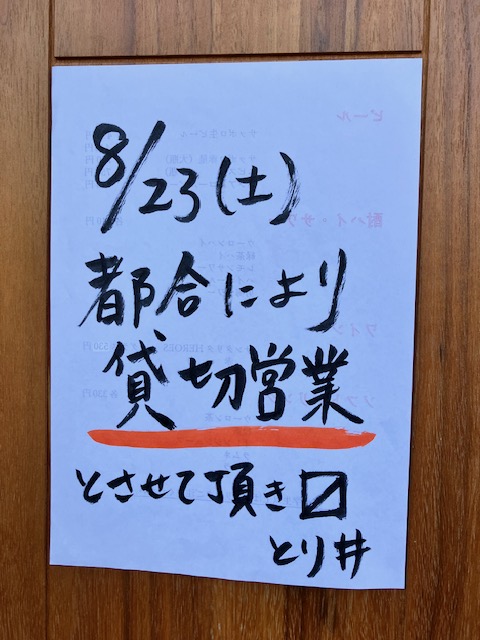 8/23(土)
都合により
貸切営業
とさせて頂き〼
とり井